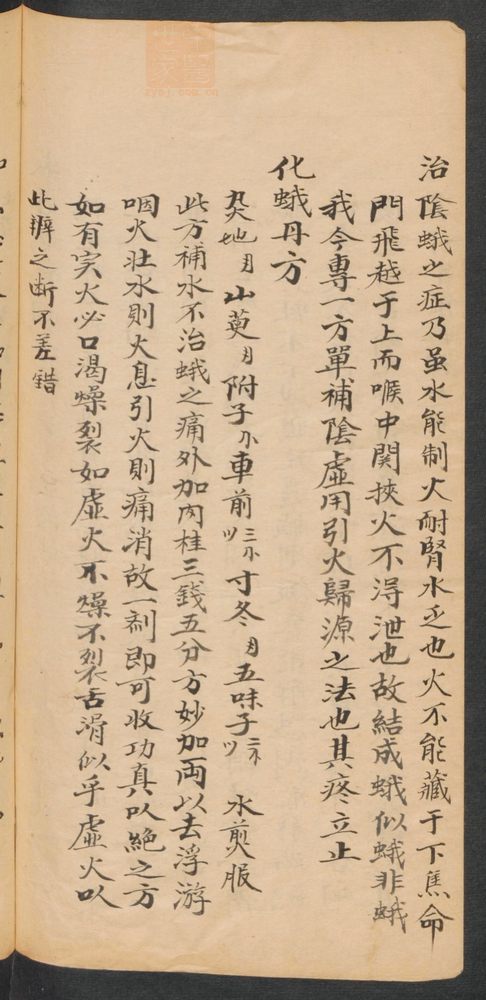 治陰蛾之症乃虽水能制火耐腎水乏也火不能藏于下焦命
門飛越于上而喉中関挾火不淂泄也故結成蛾似蛾非蛾
我今專一方單補陰虛用引火歸源之法也其疼立止
化蛾丹方
山萸 附子 車前 寸冬 五味子 水煎服
此方補水不治蛾之痛外加肉桂三錢五分方妙加両以去浮游
咽火壮水則火息引火則痛消故一剂即可收功真以絶之方
如有实火必口渴燥裂如虛火不燥不裂舌滑似乎虛火以
此辨之断不差錯